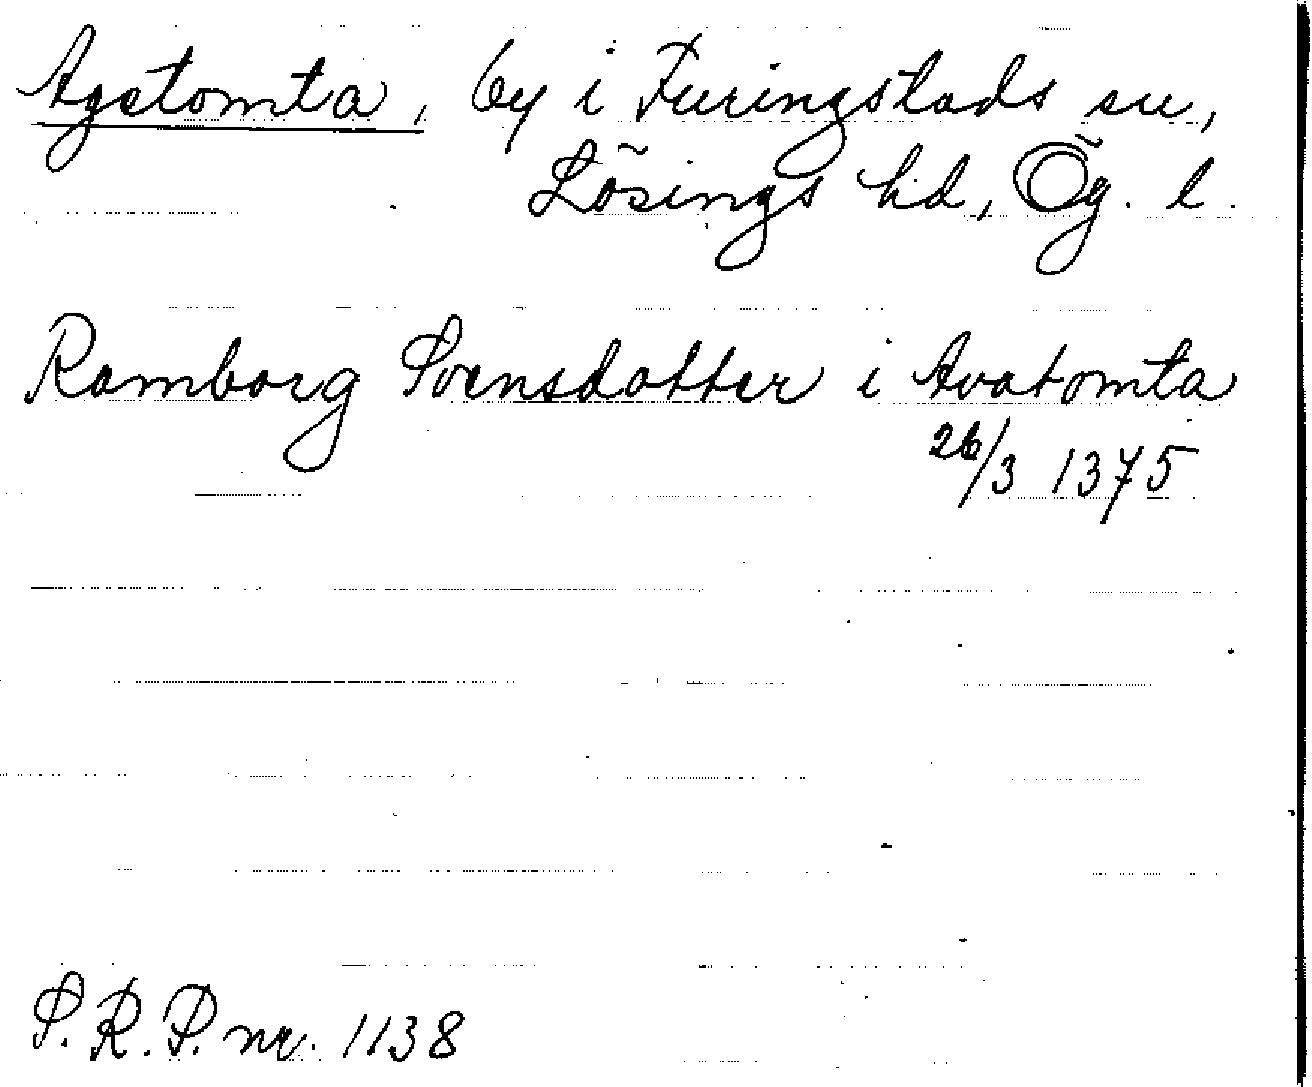 Agetomta, by i Furingstads sn,
Lösings hd, Ög. l.
Ramborg Svensdotter i Avatomta
26/3 1375
S.R.P. nr. 1138